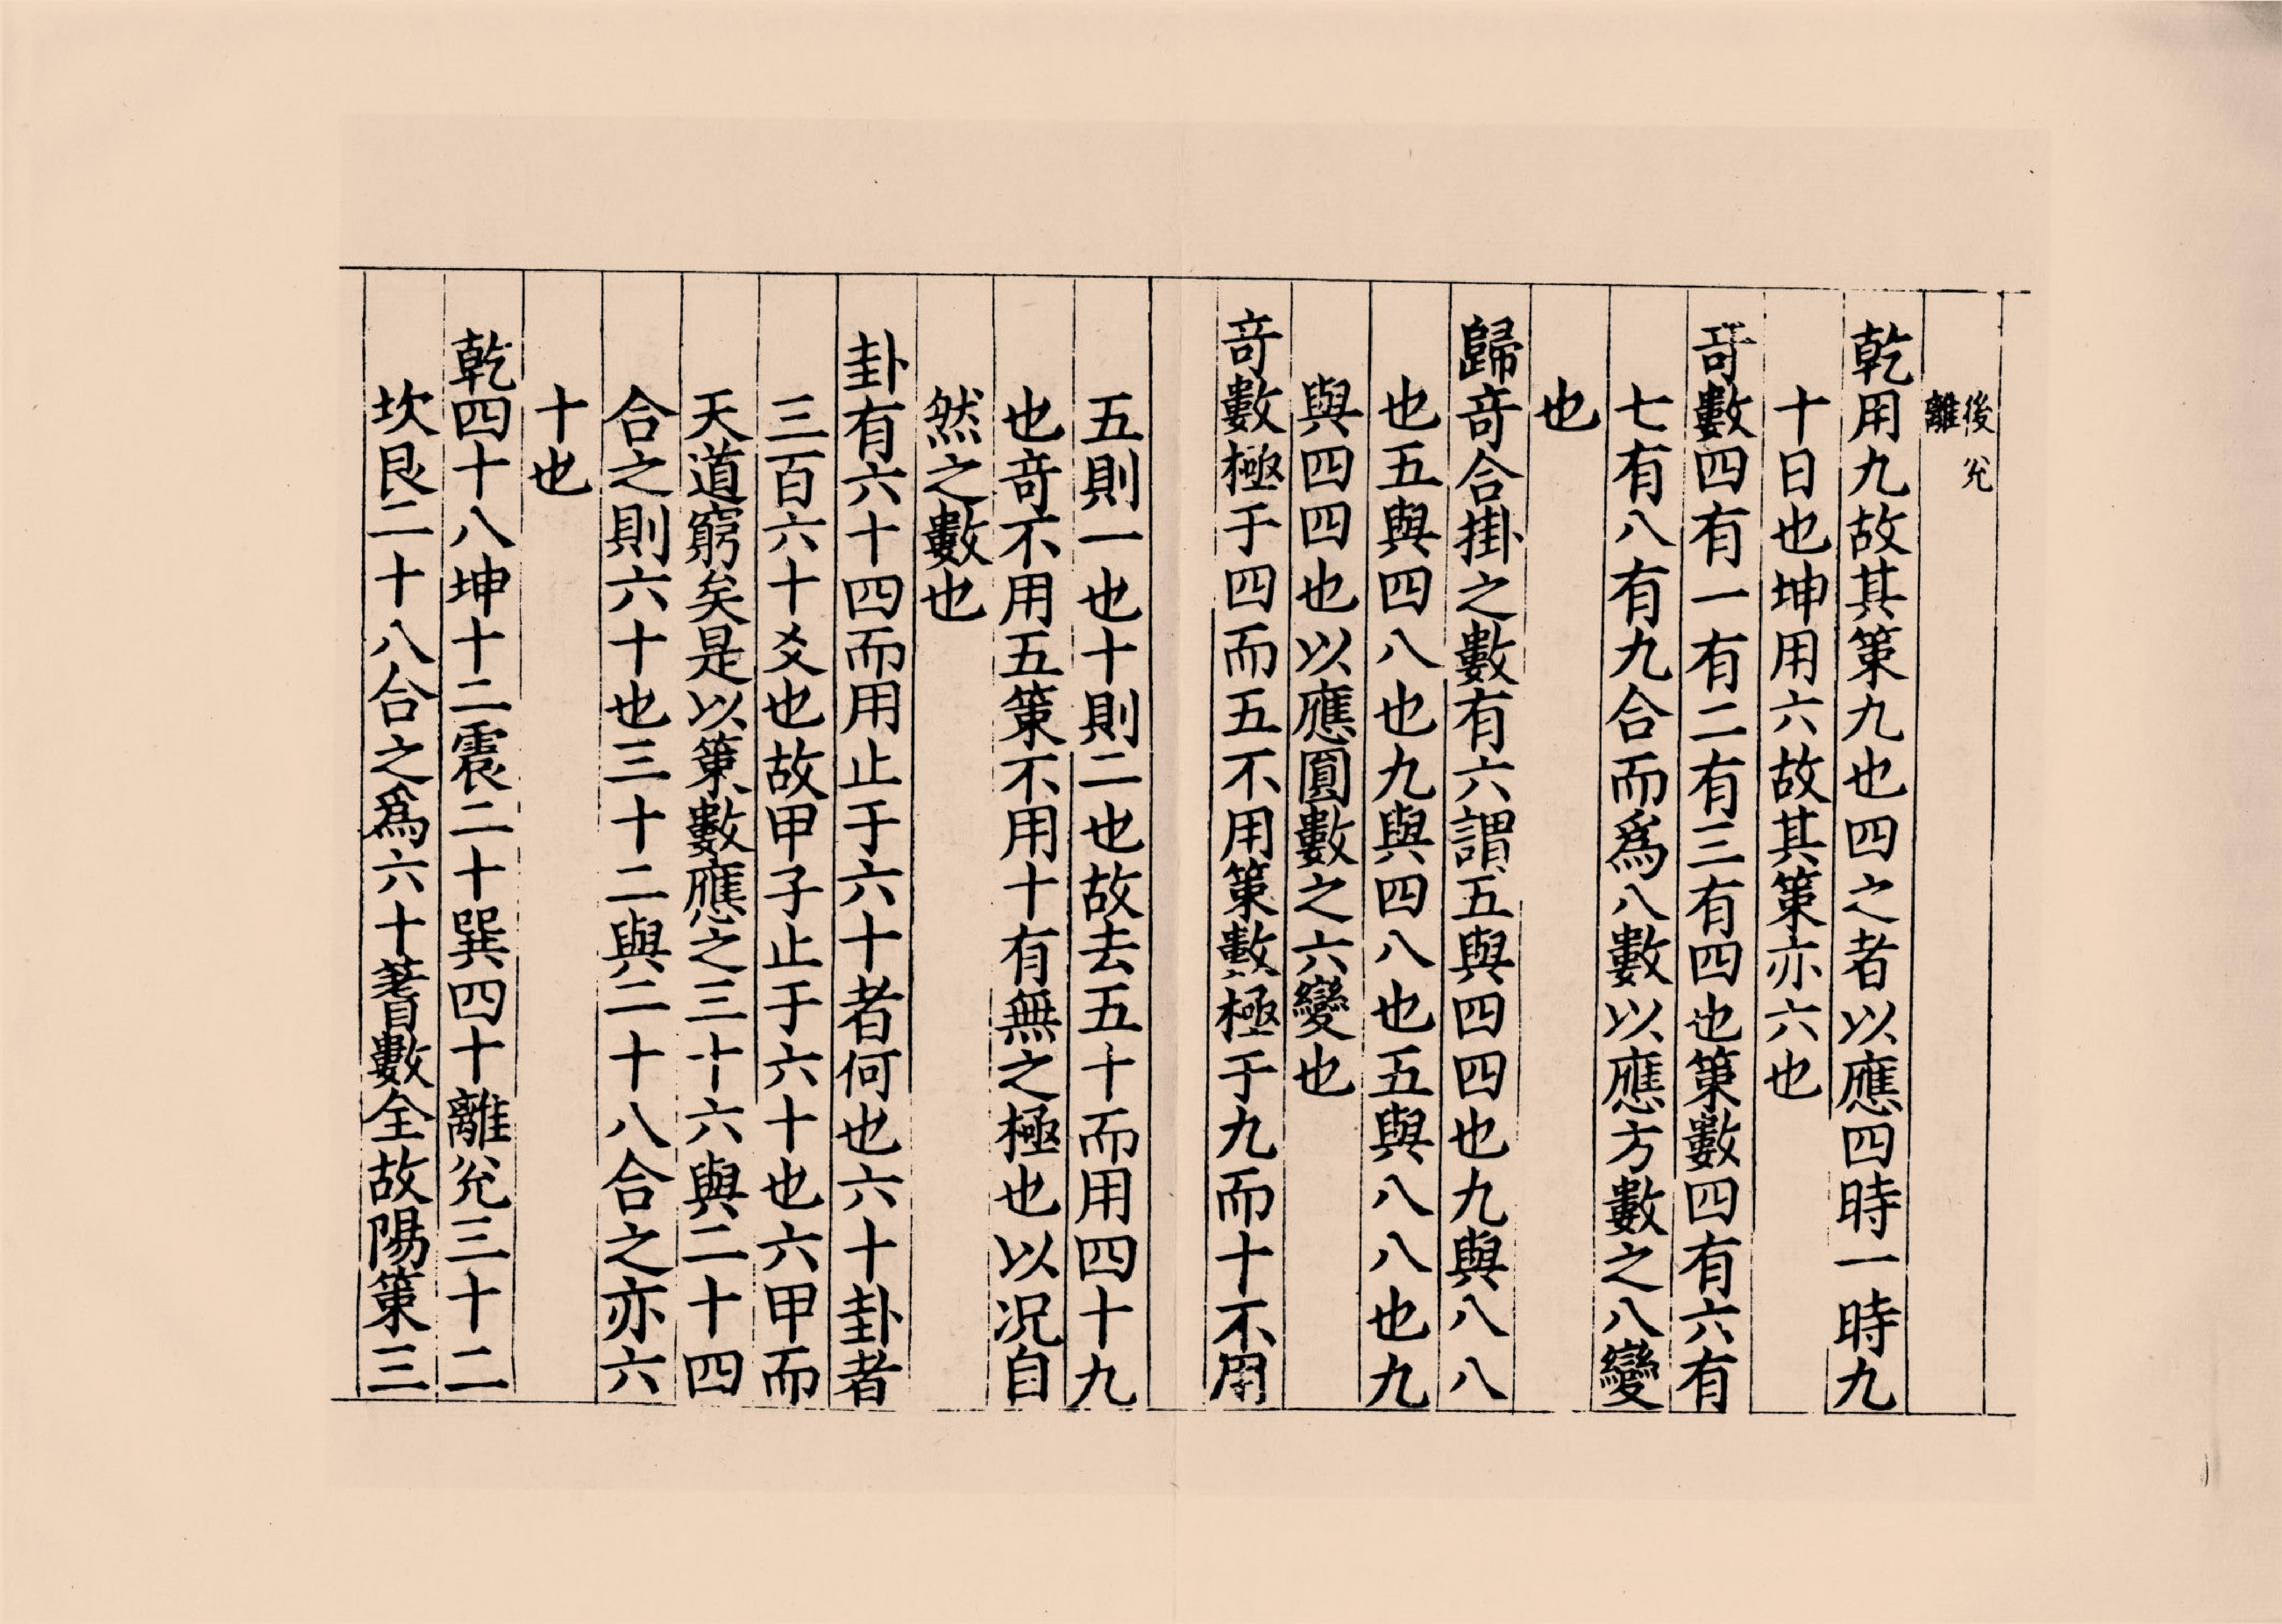 後兊
離
乾用九故其策九也四之者以應四時一時九
十日也坤用六故其策亦六也
竒數四有一有二有三有四也策數四有六有
七有八有九合而爲八數以應方數之八變
也
歸竒合掛之數有六謂五與四四也九與八八
也五與四八也九與四八也五與八八也九
與四四也以應圓數之六變也
竒數極于四而五不用策數極于九而十不用
五則一也十則二也故去五十而用四十九
也竒不用五策不用十有無之極也以况自
然之數也
卦有六十四而用止于六十者何也六十卦者
三百六十爻也故甲子止于六十也六甲而
天道窮矣是以策數應之三十六與二十四
合之則六十也三十二與二十八合之亦六
十也
乾四十八坤十二震二十巽四十離兊三十二
坎艮二十八合之爲六十蓍數全故陽策三